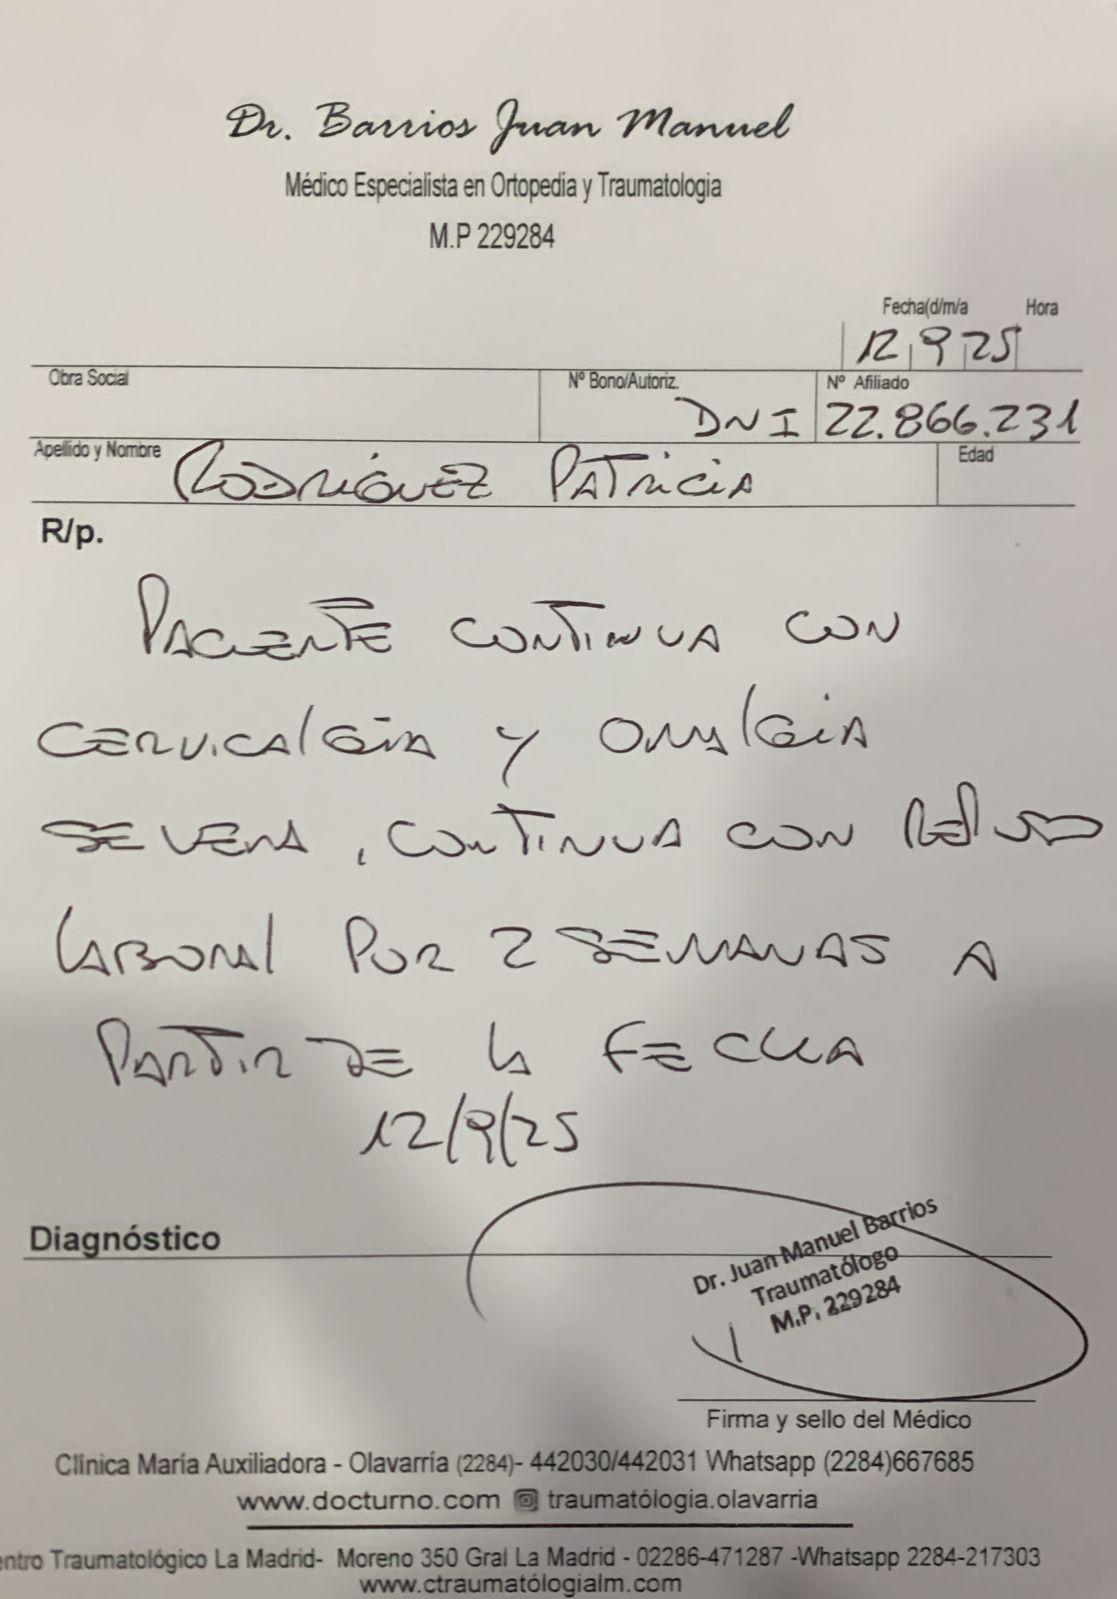 Dr. Barrios Juan Manuel
Médico Especialista en Ortopedia y Traumatologia
M.P 229284
Fecha(d/m/a Hora
12 9 25
Obra Social Nº Bono/Autoriz. Nº Afiliado
DNI 22.866.231
Apellido y Nombre RODRIGUEZ PATRICIA Edad
R/p.
PACIENTE CONTINUA CON
CERVICALGIA Y OMALGIA
SEVERA, CONTINUA CON REPOSO
LABORAL POR 2 SEMANAS A
PARTIR DE LA FECHA
12/9/25
Diagnóstico
Dr. Juan Manuel Barrios
Traumatólogo
M.P. 229284
Firma y sello del Médico
Clínica María Auxiliadora - Olavarría (2284)- 442030/442031 Whatsapp (2284)667685
www.docturno.com traumatólogia.olavarria
entro Traumatológico La Madrid- Moreno 350 Gral La Madrid - 02286-471287 -Whatsapp 2284-217303
www.ctraumatólogialm.com